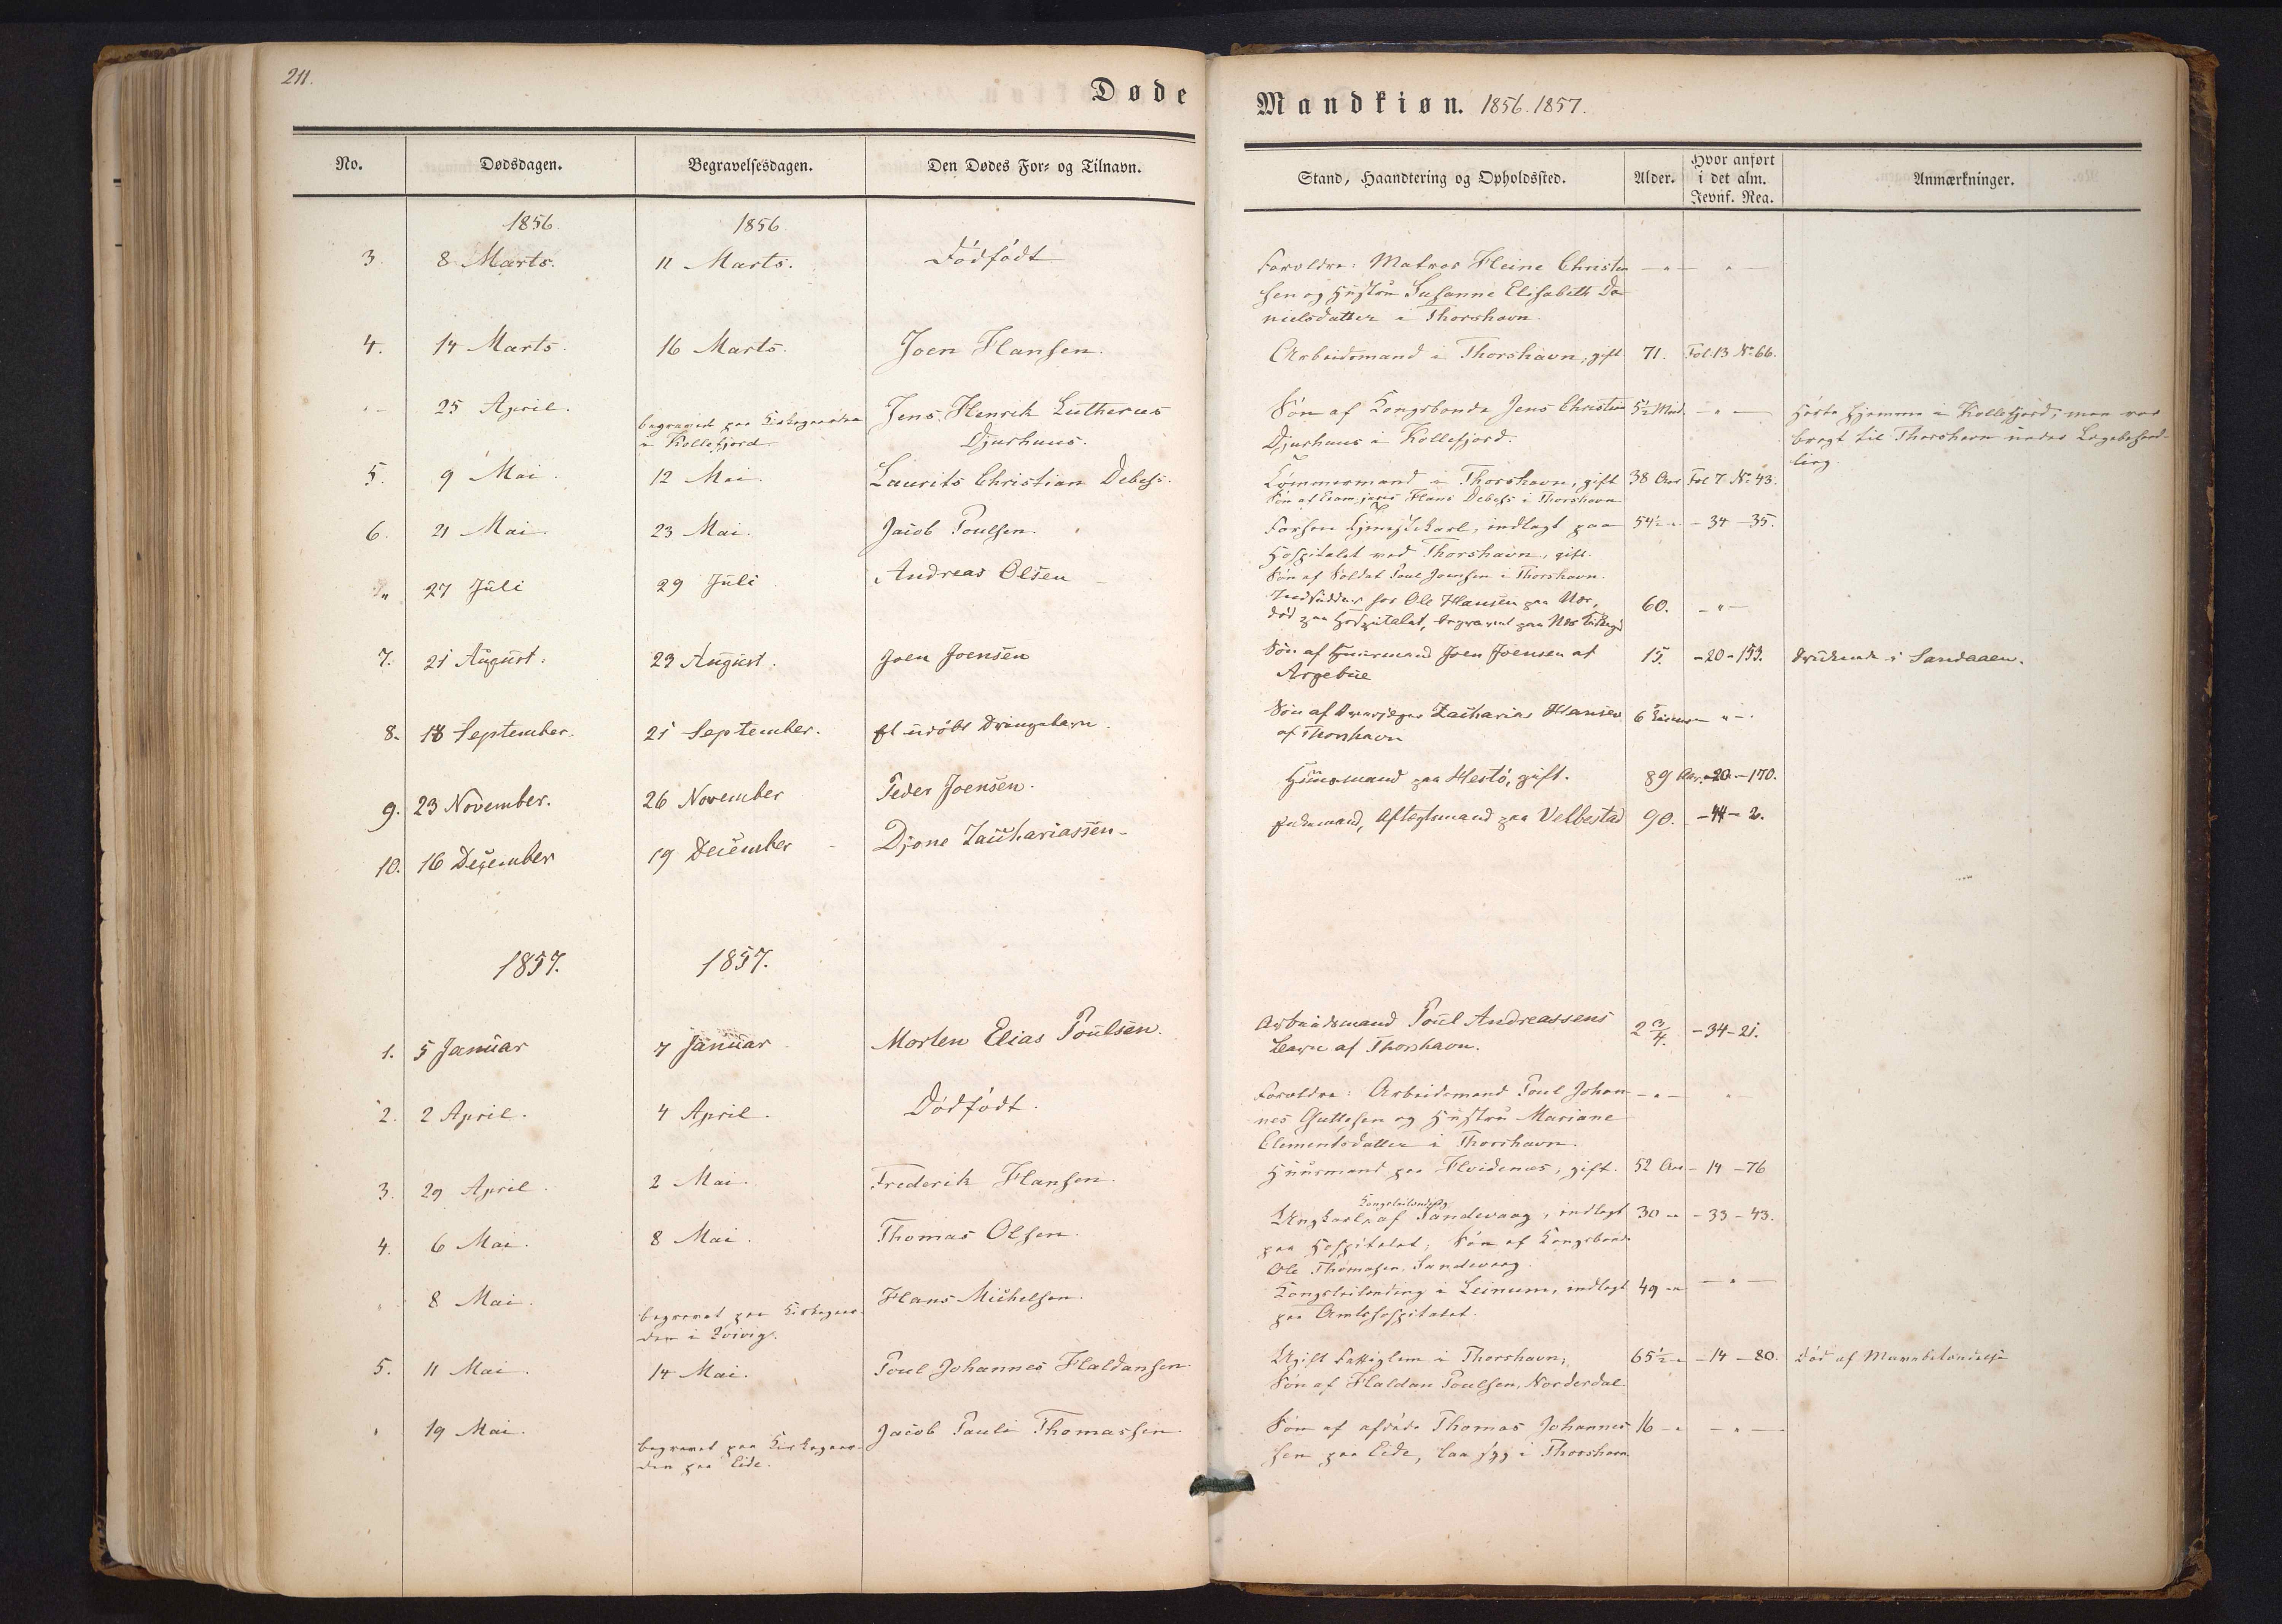 211.
Døde
Mandkiøn. 1856. 1857.
No. Dødsdagen. Begravelsesdagen. Den Dødes For- og Tilnavn. Stand, Haandtering og Opholdssted. Alder. Hvor anført i det alm. Jevnf. Reg. Anmærkninger.
1856 1856
3. 8 Marts. 11 Marts. Dödfödt Forældre: Matros Heine Christen — " — " —
sen og Hustru Susanne Elisabeth Da
nielsdatter i Thorshavn.
4. 14 Marts. 16 Marts. Joen Hansen. Arbeidsmand i Thorshavn, gift 71. Fol. 13 No 66.
" 25 April. begravet paa Kirkegaarden Jens Henrik Lutherus Sön af Kongsbonde Jens Christian 5½ Mnd. — " — Hörte hjemme i Kollefjord, men var
i Kollefjord Djurhuus. Djurhuus i Kollefjord. bragt til Thorshavn under Lægebehand-
ling.
5. 9 Mai. 12 Mai. Laurits Christian Debess. Tömmermand i Thorshavn, gift 38 Aar Fol 7 No 43.
Sön af Exam. juris Hans Debess i Thorshavn
6. 21 Mai. 23 Mai. Jacob Poulsen. Forhen Tjenestekarl, indlagt paa 54½ " - 34 - 35.
Hospitalet ved Thorshavn, gift.
Sön af Soldat Poul Joensen i Thorshavn.
" 27 Juli 29 Juli Andreas Olsen Indsidder hos Ole Hansen paa Næs, 60. - " -
död paa Hospitalet, begravet paa Næs
7. 21 August. 23 August. Joen Joensen Sön af Huusmand Joen Joensen af 15. - 20 - 153. druknede i Sandaaen.
Argebüe
8. 18 September. 21 September. Et udöbt Drengebarn. Sön af Zacharias Hansen 6 Timer - " -
af Thorshavn
9. 23 November. 26 November Peder Joensen. Huusmand paa Hestö, gift. 89 Aar. - 20 - 170.
10. 16 December 19 December Djone Zachariassen Enkemand, Aftægtsmand paa Velbestad 90. - 44 - 2.
1857. 1857.
1. 5 Januar 7 Januar Morten Elias Poulsen. Arbeidsmand Poul Andreassens 2 3/4. - 34 - 21.
Barn af Thorshavn.
2. 2 April. 4 April. Dödfödt. Forældre: Arbeidsmand Poul Johan — " — " —
nes Guttesen og Hustru Mariane
Clementsdatter i Thorshavn.
3. 29 April. 2 Mai. Frederik Hansen. Huusmand paa Hvidenæs, gift. 52 Aar - 14 - 76
Kongsleilending
4. 6 Mai. 8 Mai. Thomas Olsen. Ungkarl af Sandevaag, indlagt 30 " - 33 - 43.
paa Hospitalet; Sön af Kongsbonde
Ole Thomasen, Sandevaag.
" 8 Mai. begravet paa Kirkegaar- Hans Michelsen. Kongsleilending i Leinum, indlagt 49 " — " —
den i Qvivig. paa Amtshospitalet.
5. 11 Mai. 14 Mai. Poul Johannes Haldansen Ugift Fattiglem i Thorshavn, 65½ " - 14 - 80. Död af Mavebetændelse
Sön af Haldan Poulsen, Norderdal.
" 19 Mai. begravet paa Kirkegaar- Jacob Pauli Thomassen Sön af afdöde Thomas Johannes 16 - " - " -
den paa Eide. sen paa Eide, laa syg i Thorshavn